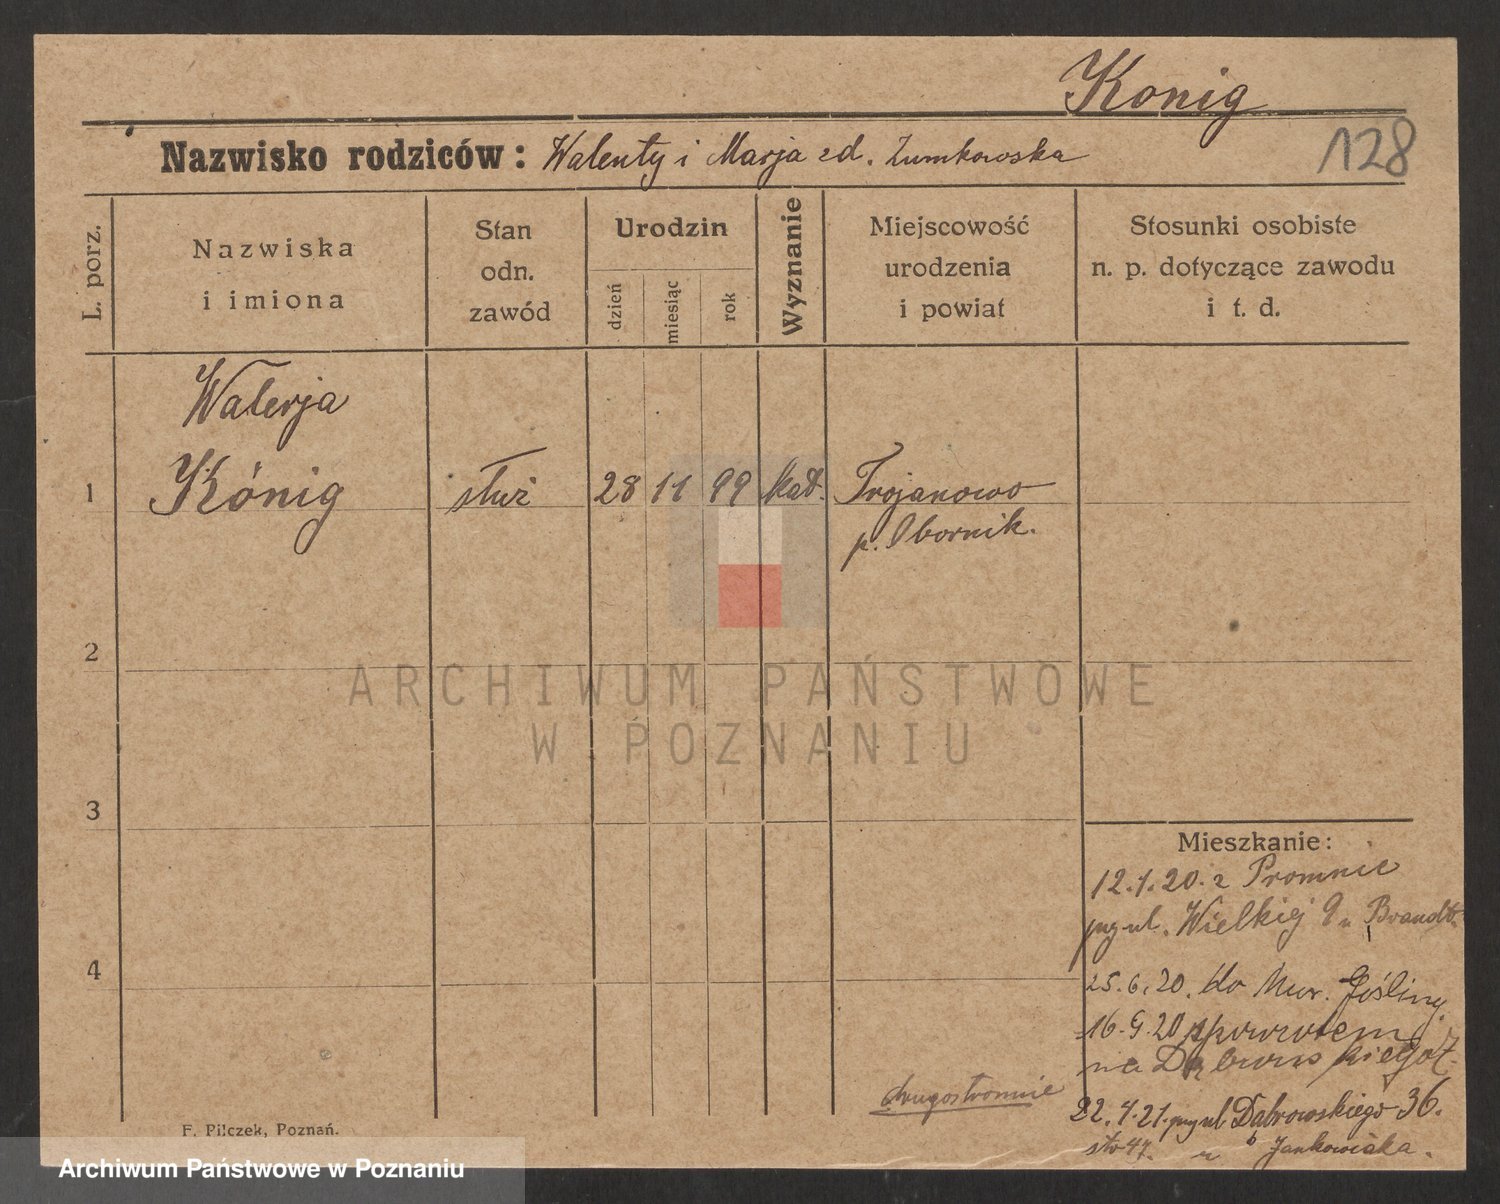 Konig
128
Nazwisko rodziców: Walenty i Marja zd. Zumkowska
L. porz.
Nazwiska
i imiona
Stan
odn.
zawód
Urodzin
dzień
miesiąc
rok
Wyznanie
Miejscowość
urodzenia
i powiat
Stosunki osobiste
n. p. dotyczące zawodu
i t. d.
Walerja
1 König służ 28 11 99 kat. Trojanowo
p. Obornik.
2
ARCHIWUM PAŃSTWOWE
W POZNANIU
3
Mieszkanie:
12.1.20. z Promnic
ul. Wielkiej 9 u Brandt.
4
25.6.20. do Mur. Gośliny.
16.9.20 spowrotem
na Dąbrowskiego
drugostronnie
22.4.21. ul Dąbrowskiego 36.
u Jankowiaka.
F. Pilczek, Poznań.
Archiwum Państwowe w Poznaniu